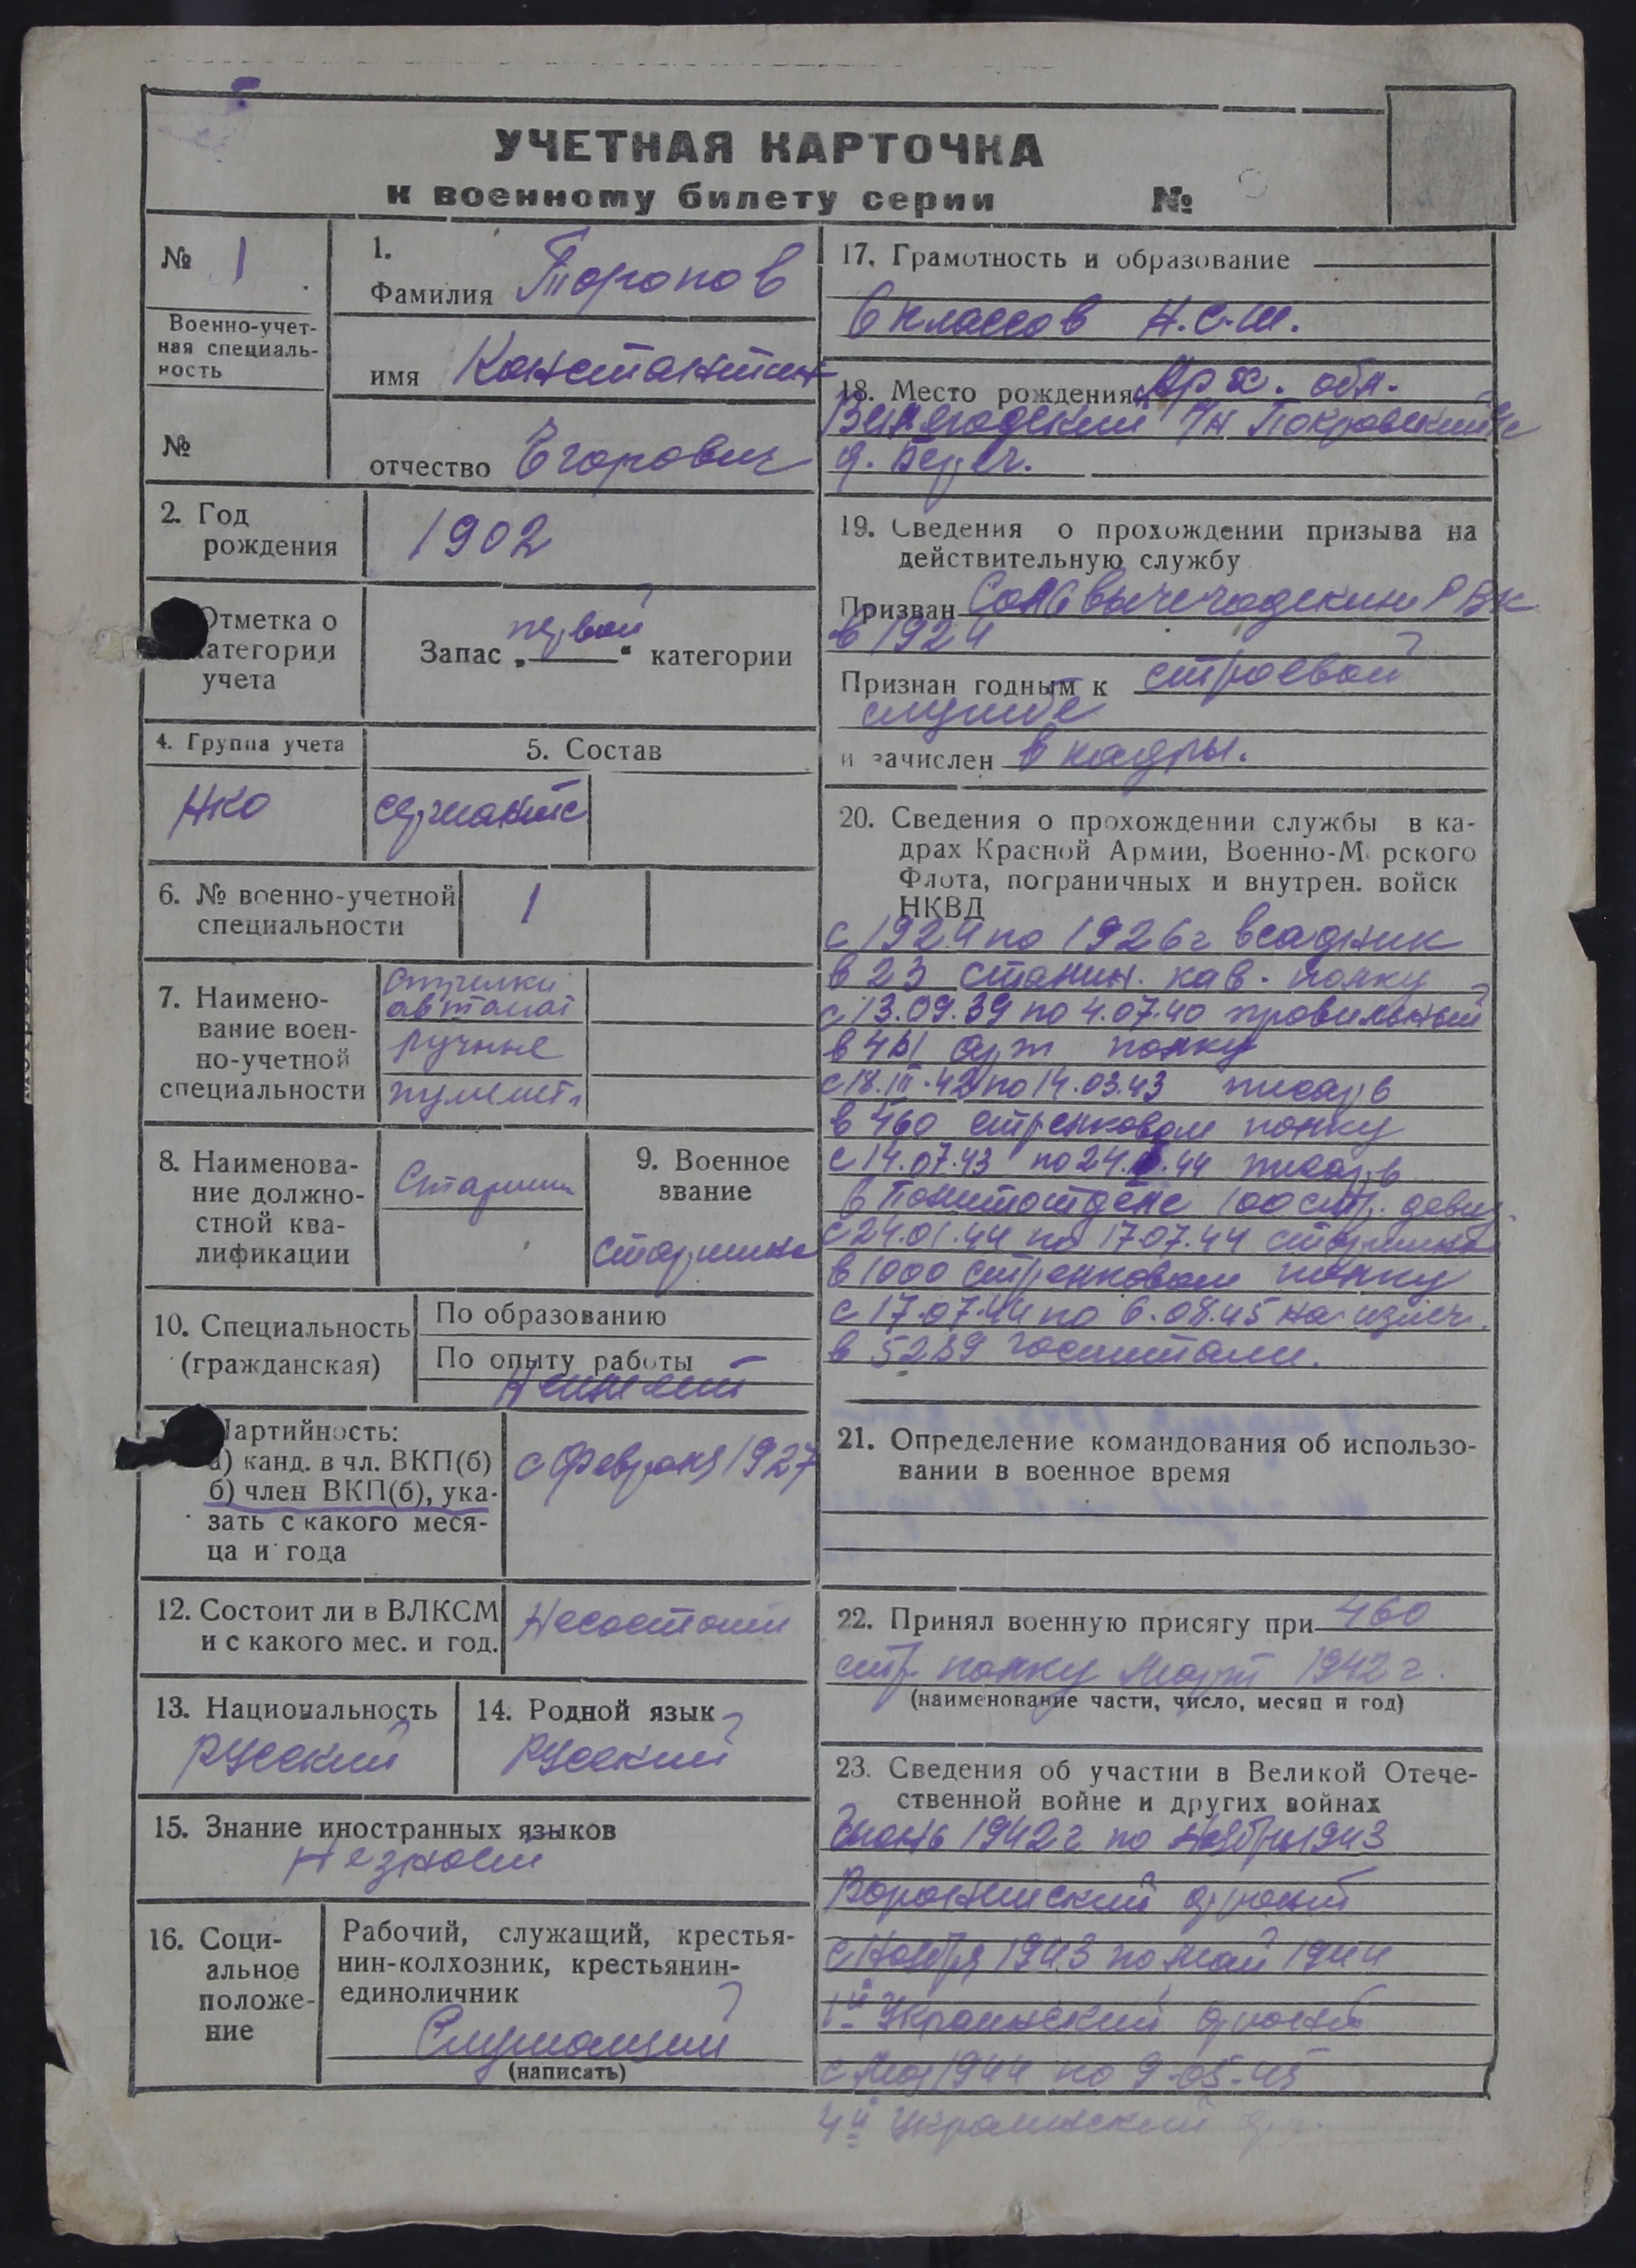 УЧЕТНАЯ КАРТОЧКА
к военному билету серии №
№ 1
Военно-учет-
ная специаль-
ность
№
1.
Фамилия Торопов
имя Константин
отчество Егорович
2. Год
рождения
1902
Отметка о
категории
учета
Запас „первой“ категории
4. Группа учета
НКО
5. Состав
сержантс
6. № военно-учетной
специальности
1
7. Наимено-
вание воен-
но-учетной
специальности
стрелки
автомат
ручные
пулемет.
8. Наименова-
ние должно-
стной ква-
лификации
Старшин
9. Военное
звание
старшина
10. Специальность
(гражданская)
По образованию
По опыту работы
Неимеет
Партийность:
а) канд. в чл. ВКП(б)
б) член ВКП(б), ука-
зать с какого меся-
ца и года
с февраля 1927
12. Состоит ли в ВЛКСМ
и с какого мес. и год.
Несостоит
13. Национальность
русский
14. Родной язык
русский
15. Знание иностранных языков
Незнает
16. Соци-
альное
положе-
ние
Рабочий, служащий, крестья-
нин-колхозник, крестьянин-
единоличник
Служащий
(написать)
17. Грамотность и образование
6 классов Н.С.Ш.
18. Место рождения Арх. обл.
р/н Покровский с/с
д.
19. Сведения о прохождении призыва на
действительную службу
Призван Сольвычегодским РВК
в 1924
Признан годным к строевой
службе
и зачислен в кадры.
20. Сведения о прохождении службы в ка-
драх Красной Армии, Военно-М рского
Флота, пограничных и внутрен. войск
НКВД
с 1924 по 1926г всадник
в 23 кав. полку
с 13.09.39 по 4.07.40
в арт полку
с 18.III.42 по 14.03.43 писарь
в 460 стрелковом полку
с 14.07.43 по 24. .44 писарь
в Политотделе 100 стр. девиз.
с 24.01.44 по 17.07.44 старшина
в 1000 стрелковом полку
с 17.07.44 по 6.08.45 на излеч.
в 5289 госпитали.
21. Определение командования об использо-
вании в военное время
22. Принял военную присягу при 460
стр полку Март 1942 г.
(наименование части, число, месяц и год)
23. Сведения об участии в Великой Отече-
ственной войне и других войнах
1942г по Ноябрь 1943
Воронежский фронт
с Ноября 1943 по май 1944
1й Украинский фронт
с Мая 1944 по 9.05.45
4й Украинский